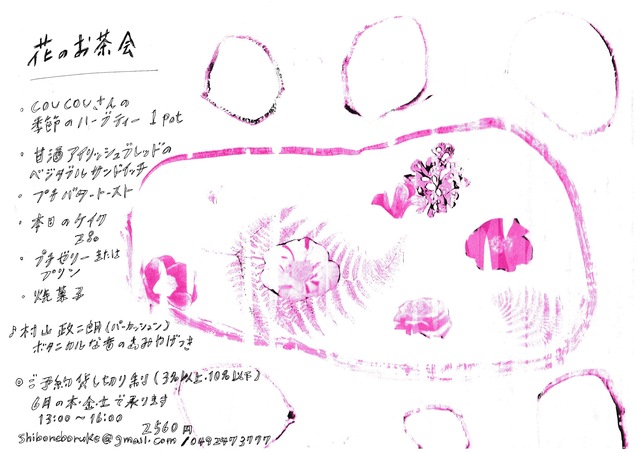 花のお茶会
・COUCOUさんの
季節のハーブティー 1pot
・甘酒アイリッシュブレッドの
ベジタブルサンドイッチ
・プチバタートースト
・本日のケイク
2品
・プチゼリーまたは
プリン
・焼菓子
♪村山政二朗(パーカッション)
ボタニカルな音のおみやげつき
◎ご予約貸し切り制(3名以上・10名以下)
6月の木・金・土で承ります
13:00〜16:00
2560円
shiboneboruke@gmail.com /0492473777